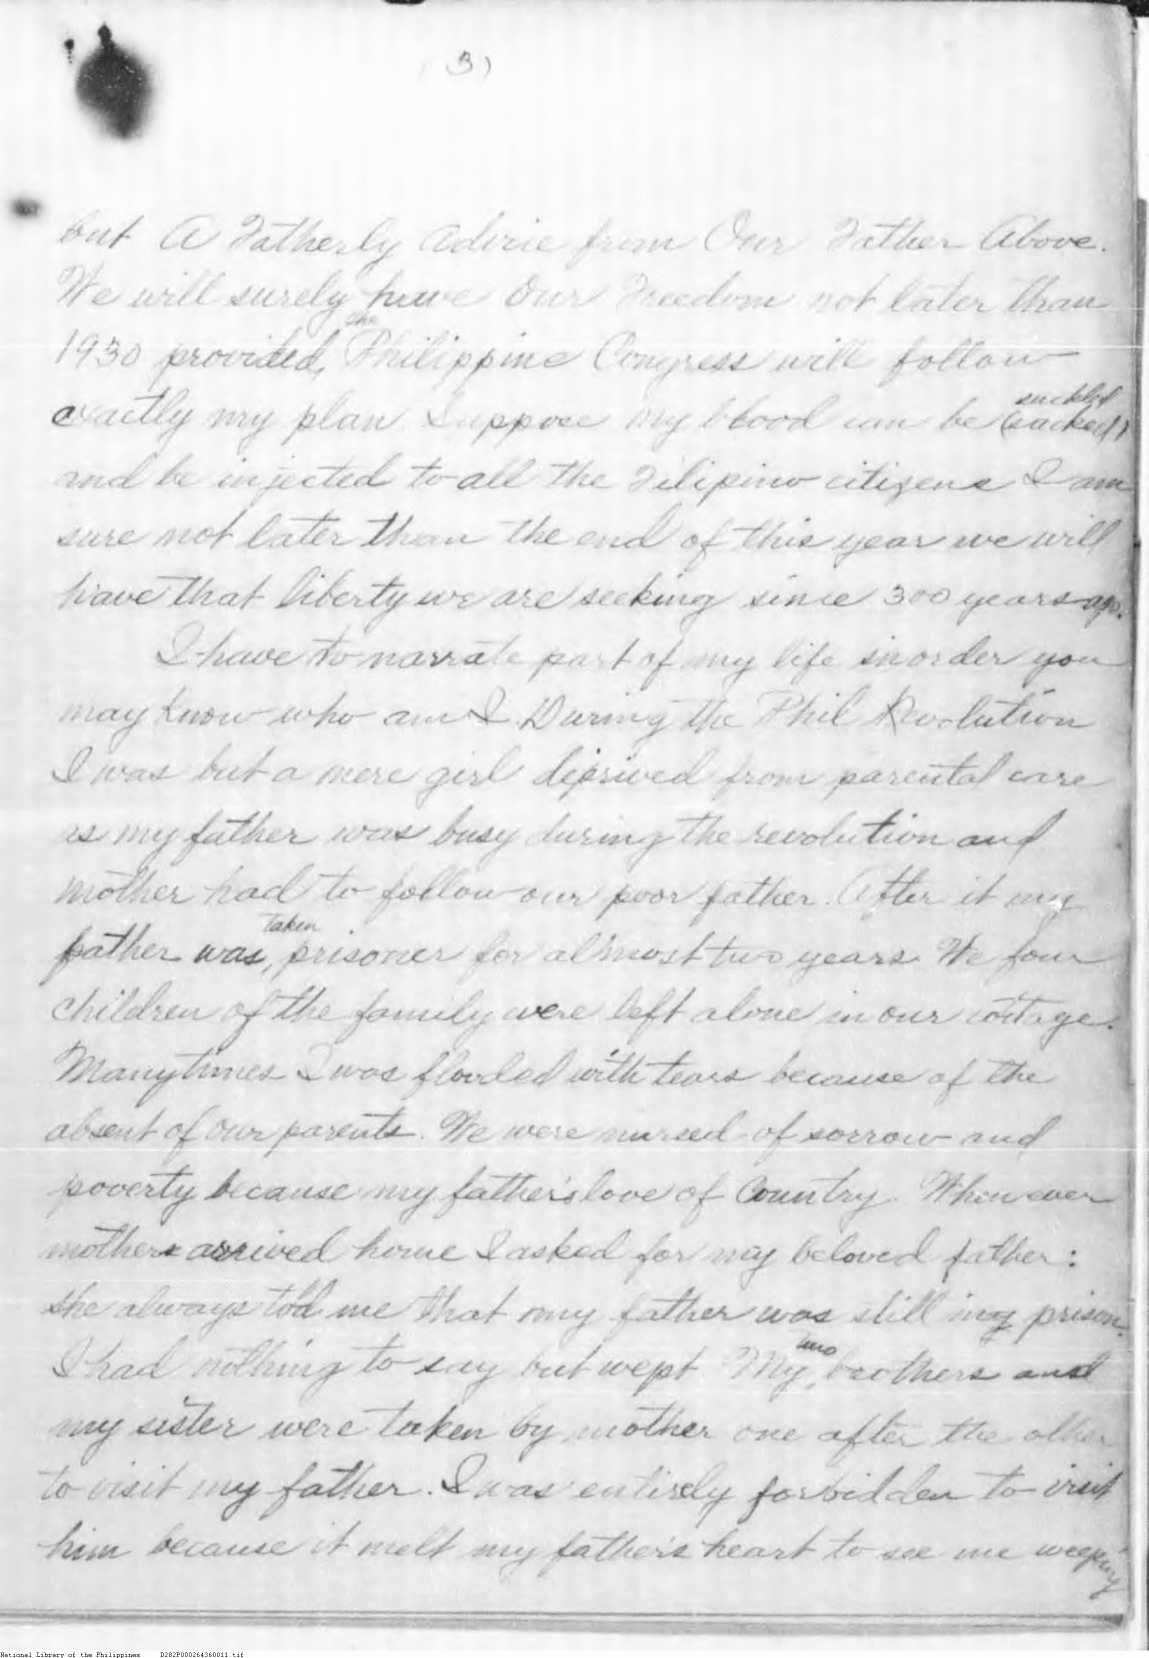 (3)
but A Fatherly Advice from Our Father Above.
We will surely have Our Freedom not later than
1930 provided, the Philippine Congress will follow
exactly my plan. Suppose my blood can be suckled (sacked)
and be injected to all the Filipino citizens I am
sure not later than the end of this year we will
have that liberty we are seeking since 300 years ago.
I have to narrate part of my life inorder you
may know who am I. During the Phil Revolution
I was but a mere girl deprived from parental care
as my father was busy during the revolution and
mother had to follow our poor father. After it my
father was, taken prisoner for almost two years. We four
children of the family were left alone in our cottage.
Manytimes I was flooded with tears because of the
absent of our parents. We were nursed of sorrow and
poverty because my father's love of Country. Whenever
mother arrived home I asked for my beloved father:
she always told me that my father was still in prison.
I had nothing to say but wept. My two brothers and
my sister were taken by mother one after the other
to visit my father. I was entirely forbidden to visit
him because it melt my father's heart to see me weeping
National Library of the Philippines D282P000264360011.tif